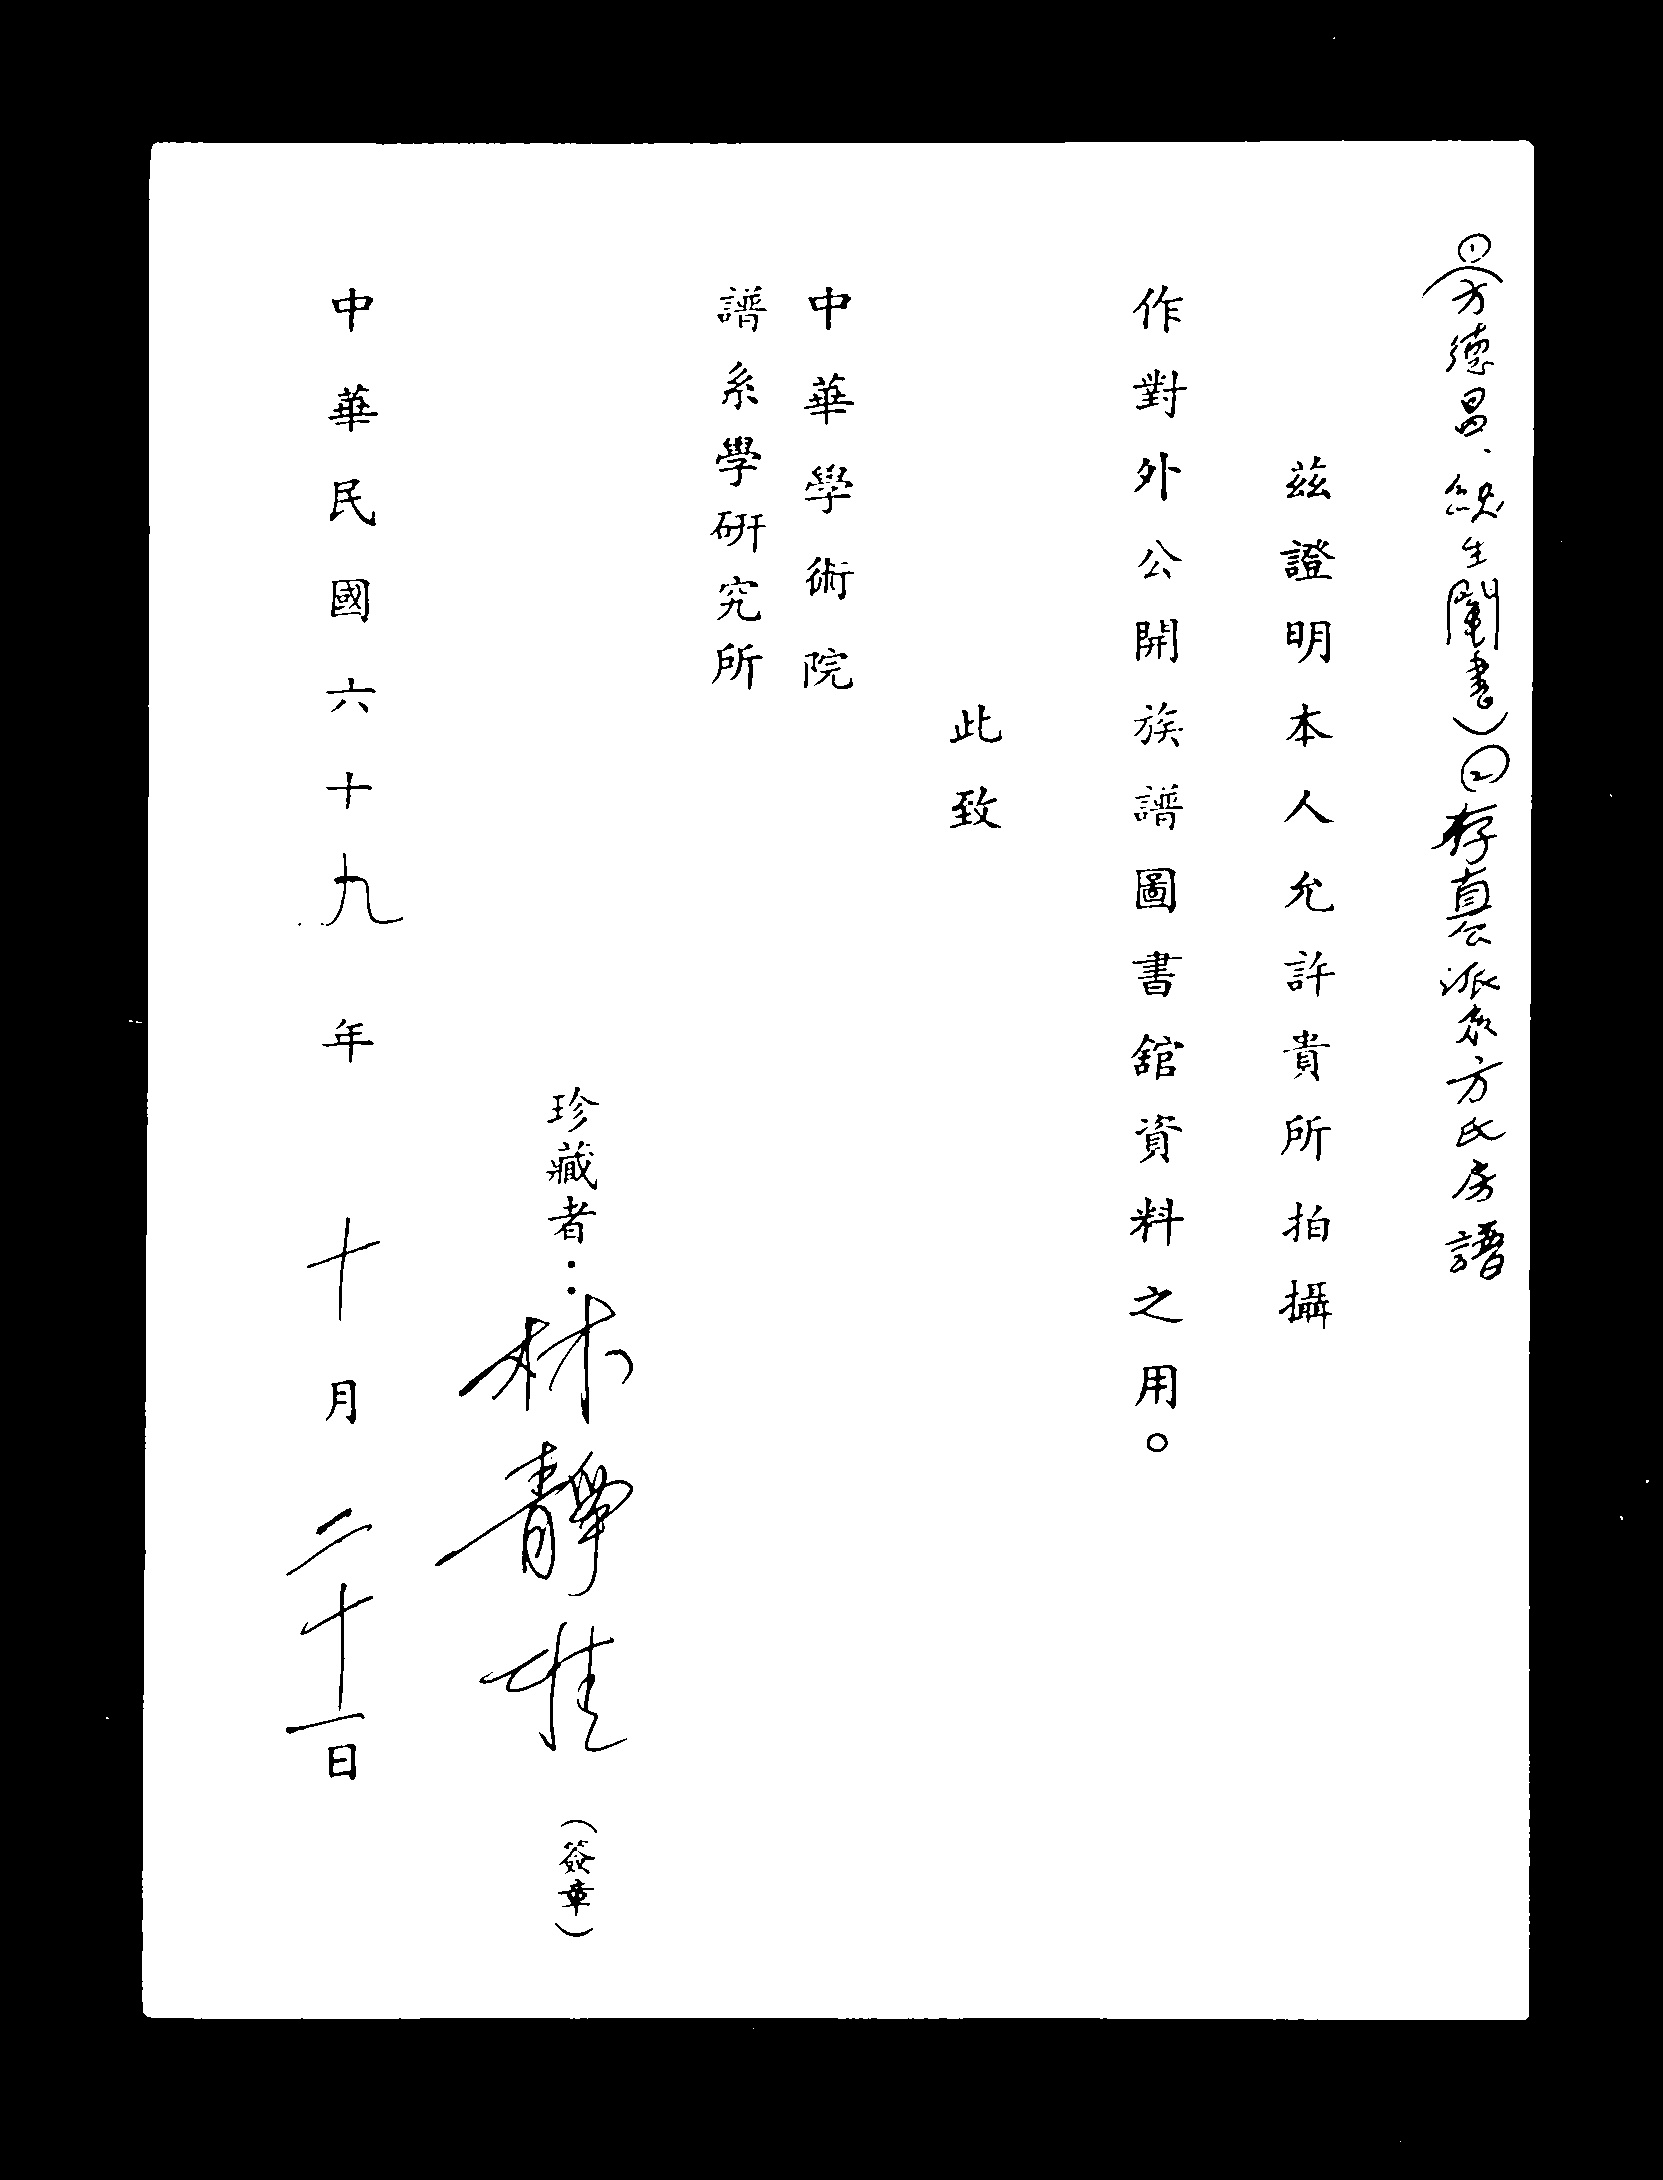 ①(方德昌、統生鬮書)②存真公派衣方氏房譜
茲證明本人允許貴所拍攝
作對外公開族譜圖書舘資料之用。
此致
中華學術院
譜系學研究所
珍藏者：林靜雄(簽章)
中華民國六十九年十月二十一日